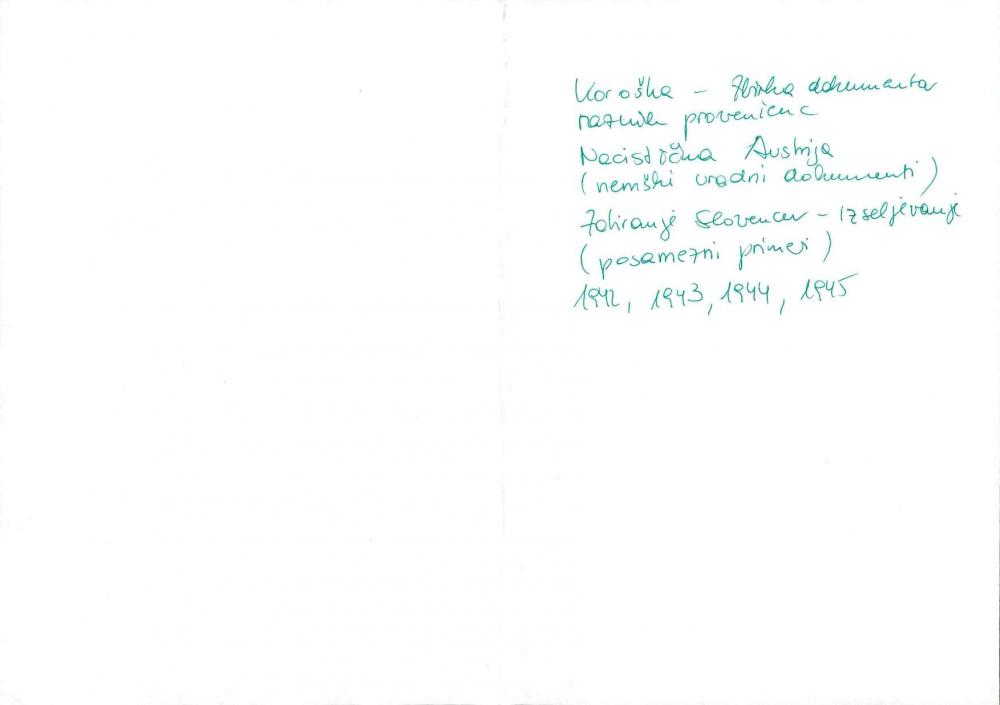 Koroška – Zbirka dokumenta
raznih provenienc
Nacistična Austrija
(nemški uradni dokumenti)
Zatiranje Slovencev – izseljevanje
(posamezni primeri)
1942, 1943, 1944, 1945